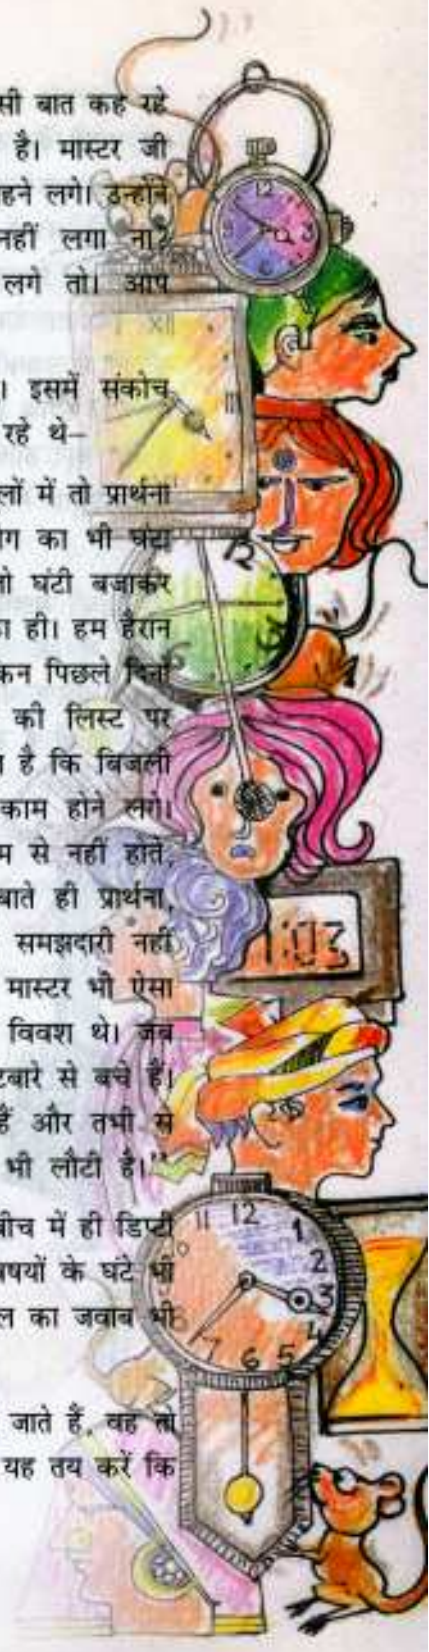 सी बात कह रहे
है। मास्टर जी
हने लगे। उन्होंने
नहीं लगा ना?
लगे तो। आप
। इसमें संकोच
रहे थे–
लों में तो प्रार्थना
ग का भी घंटा
तो घंटी बजाकर
ा ही। हम हैरान
कन पिछले दिनों
की लिस्ट पर
है कि बिजली
काम होने लगे।
म से नहीं होते,
बाते ही प्रार्थना,
समझदारी नहीं
मास्टर भी ऐसा
विवश थे। जब
टबारे से बचे हैं।
हैं और तभी से
भी लौटी है।''
बीच में ही डिप्टी
वषयों के घंटे भी
ल का जवाब भी
जाते हैं, वह तो
यह तय करें कि
12
3
XII
III
12
6
1:03
11 12 1
2
3
4
5
6
7
8